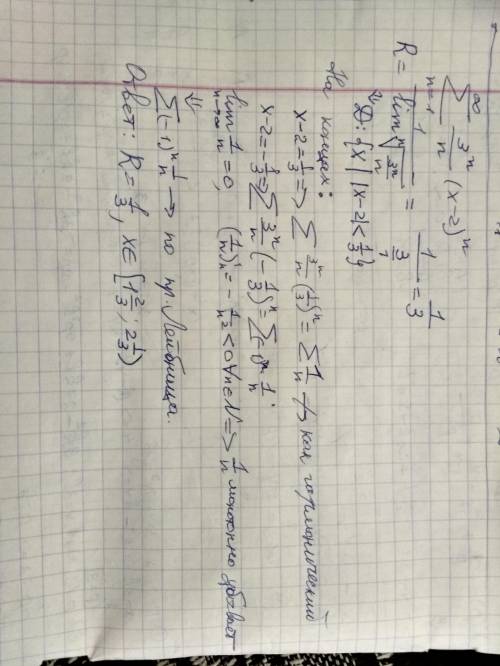 ∞
∑ 3ⁿ/n (x-2)ⁿ
n=1
R = 1/(lim ⁿ√(3ⁿ/n)) = 1/(3/1) = 1/3
⇓
D: {x | |x-2| < 1/3}
На концах:
x-2 = 1/3 => ∑ 3ⁿ/n (1/3)ⁿ = ∑ 1/n ↛ как гармонический
x-2 = -1/3 => ∑ 3ⁿ/n (-1/3)ⁿ = ∑ (-1)ⁿ 1/n.
lim 1/n = 0, (1/n)'ₙ = -1/n² < 0 ∀n∈N => 1/n монотонно убывает
n→∞
⇓
∑ (-1)ⁿ 1/n → по пр. Лейбница.
Ответ: R = 1/3, x∈[1 2/3; 2 1/3)